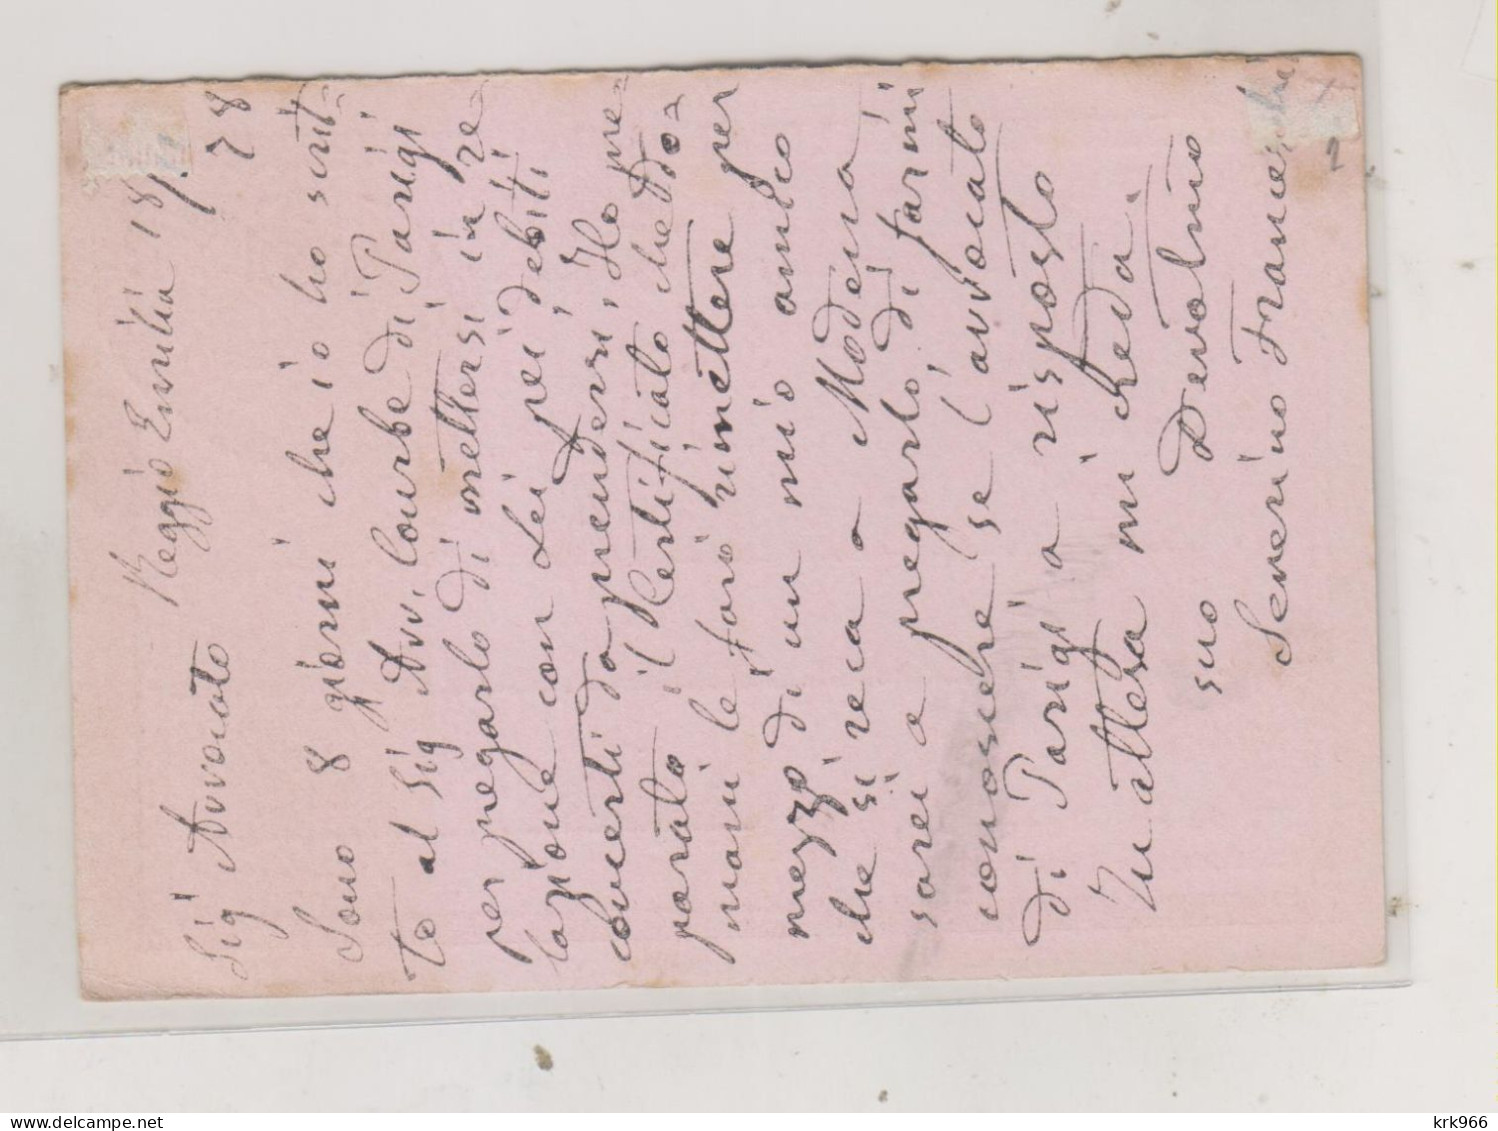 Reggio Emilia 18/7 78
Sig Avvocato
Sono 8 giorni che io ho scrit-
to al Sig Avv. Courbe di Parigi
per pregarlo di mettersi in re-
lazione con Lei pei debiti
concerti da prendersi, Ho pre-
parato il Certificato che do-
mani le farò rimettere per
mezzo di un mio amico
che si reca a Modena
sarei a pregarlo, di farmi
conoscere se l'avvocato
di Parigi a risposto
In attesa mi creda.
suo Devotmo
Severino
krk966